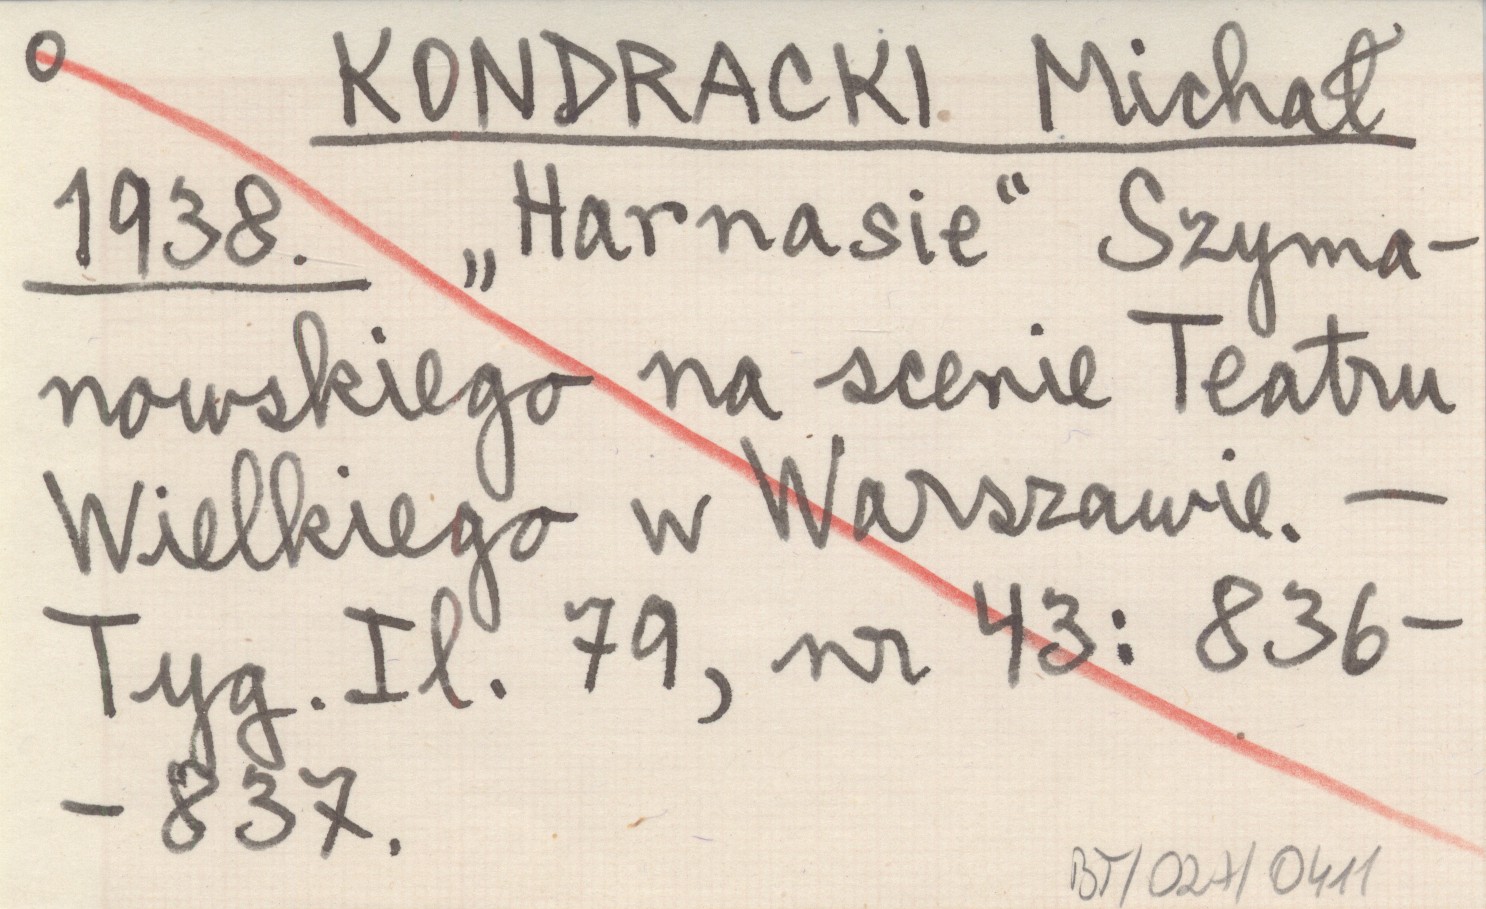 o KONDRACKI Michał
1938. „Harnasie“ Szyma-
nowskiego na scenie Teatru
Wielkiego w Warszawie. —
Tyg. Il. 79, nr 43: 836-
- 837.
BT/027/0411